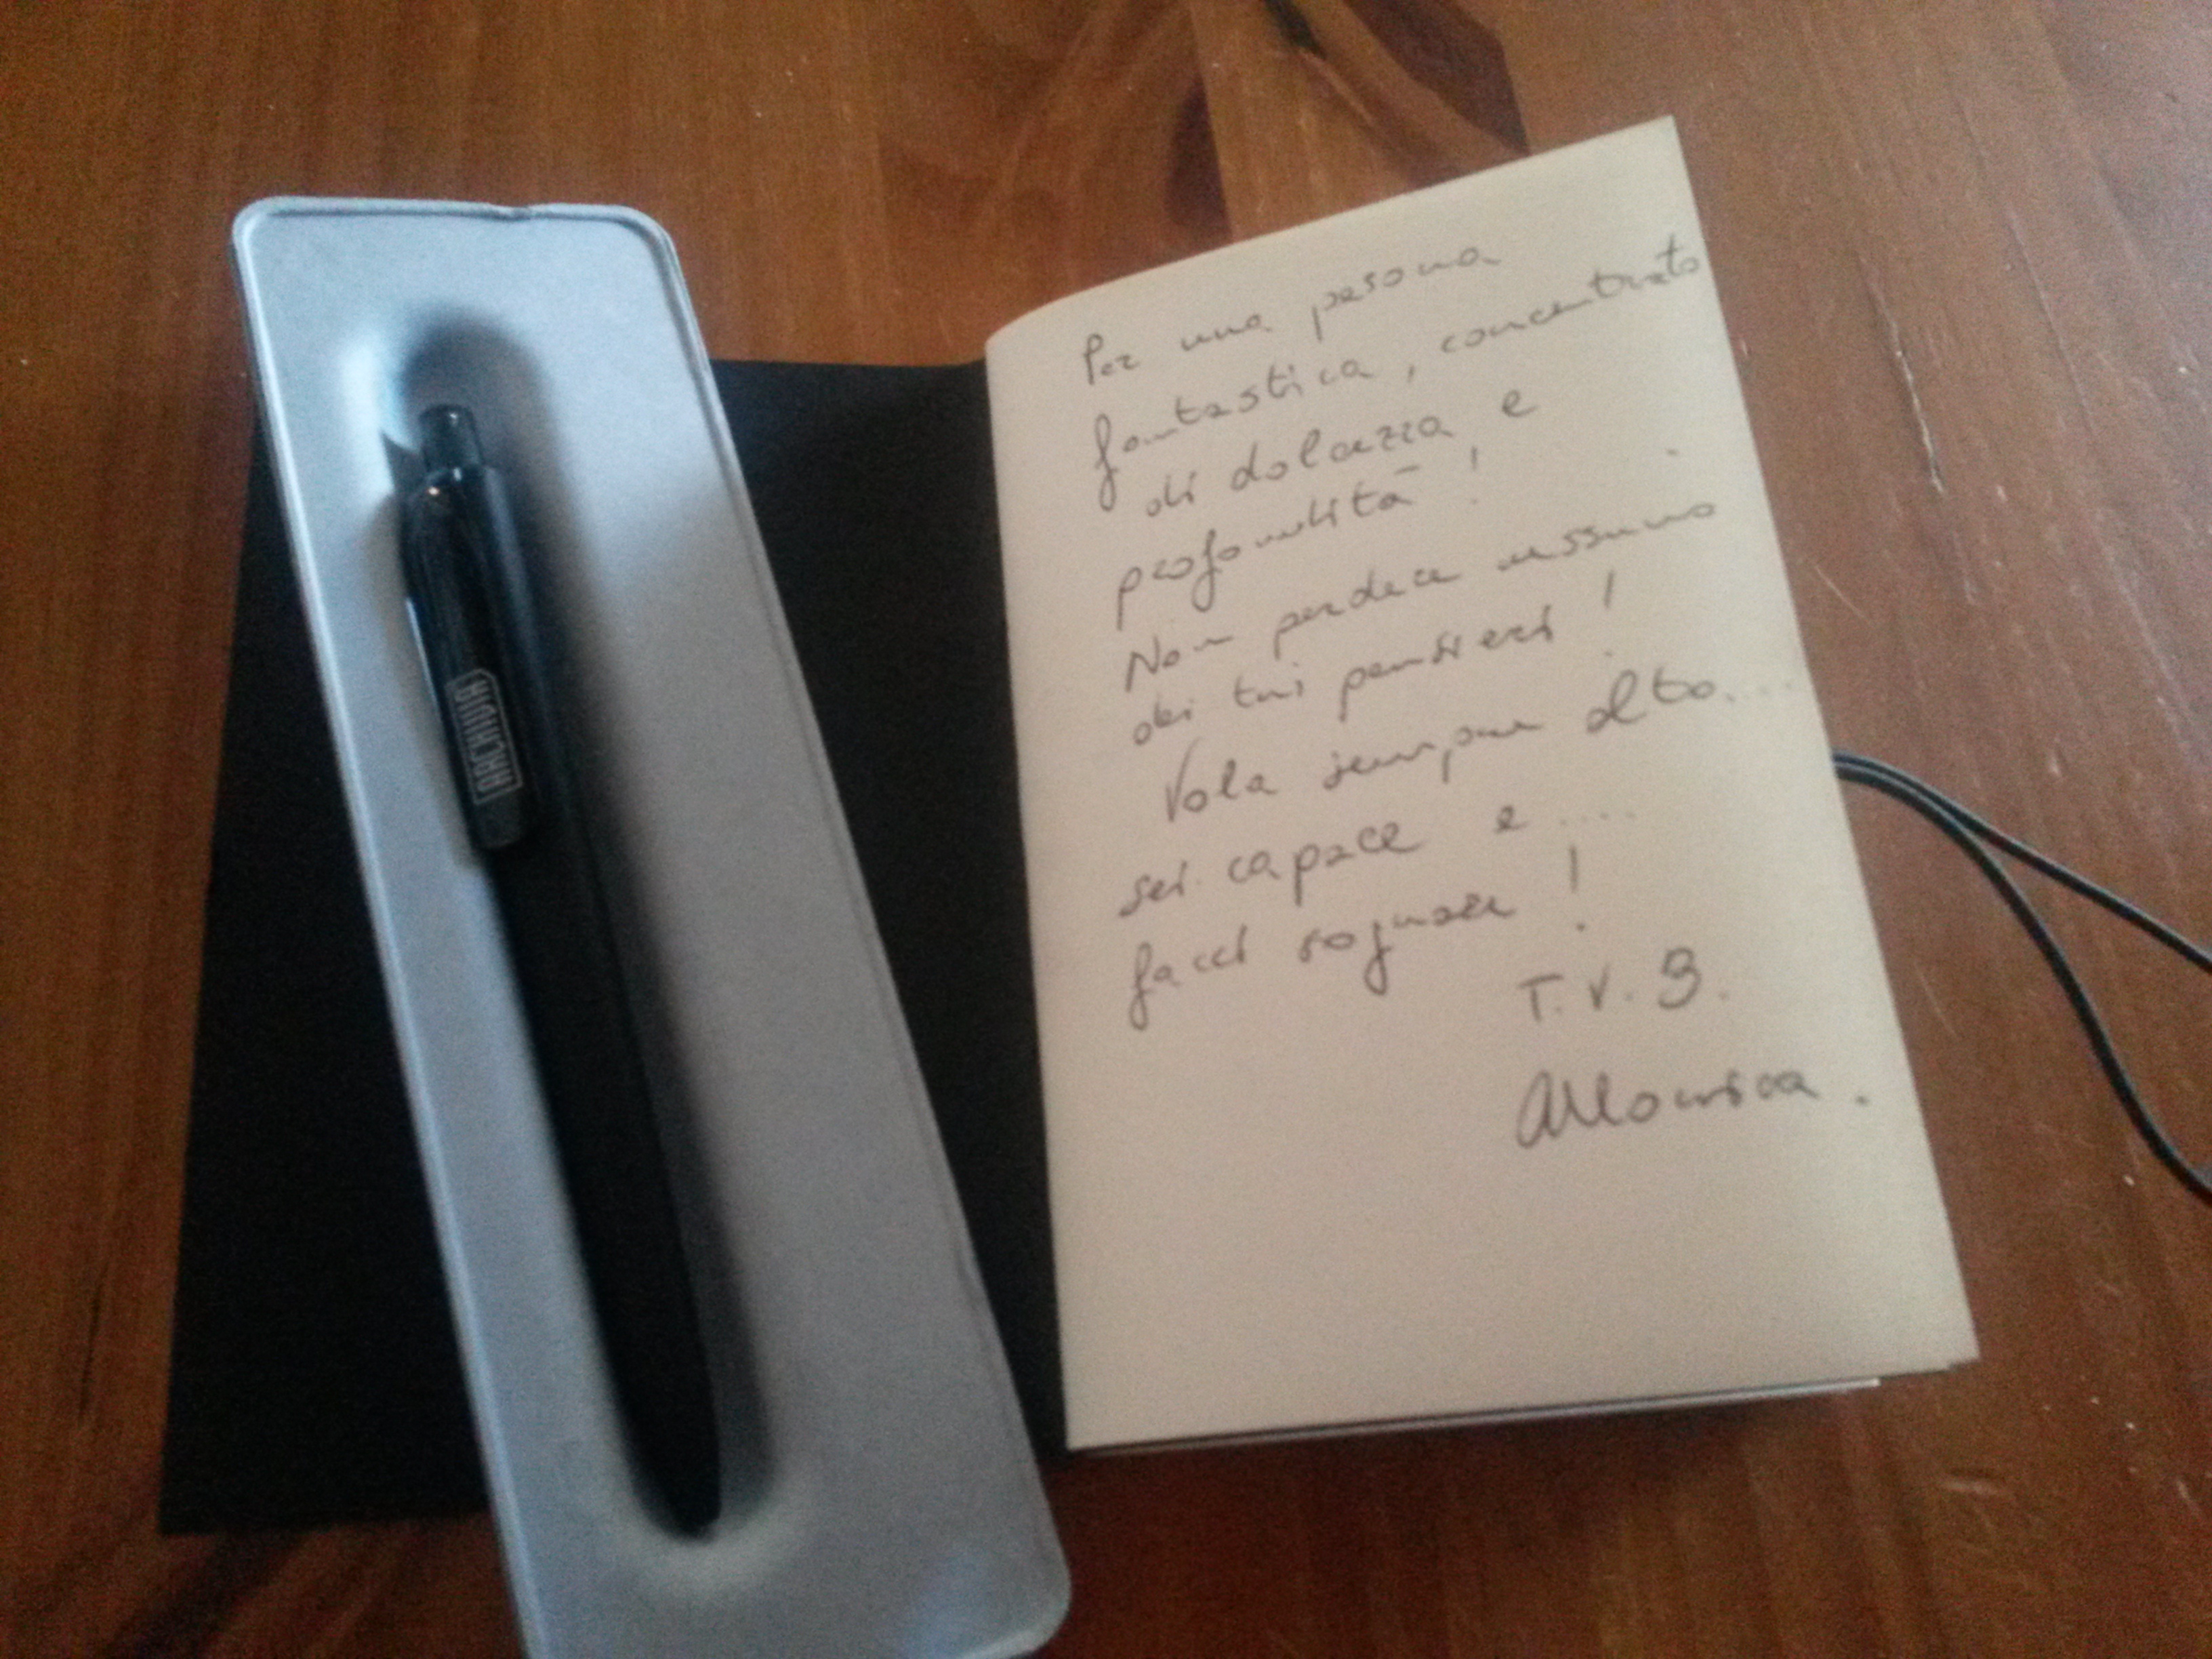 Per una pesona
fantastica, concentrato
di dolcezza e
profondità!
Non perdere nessuno
dei tuoi pensieri!
Vola sempre alto....
sei capace e ....
facci sognare!
T.V.B.